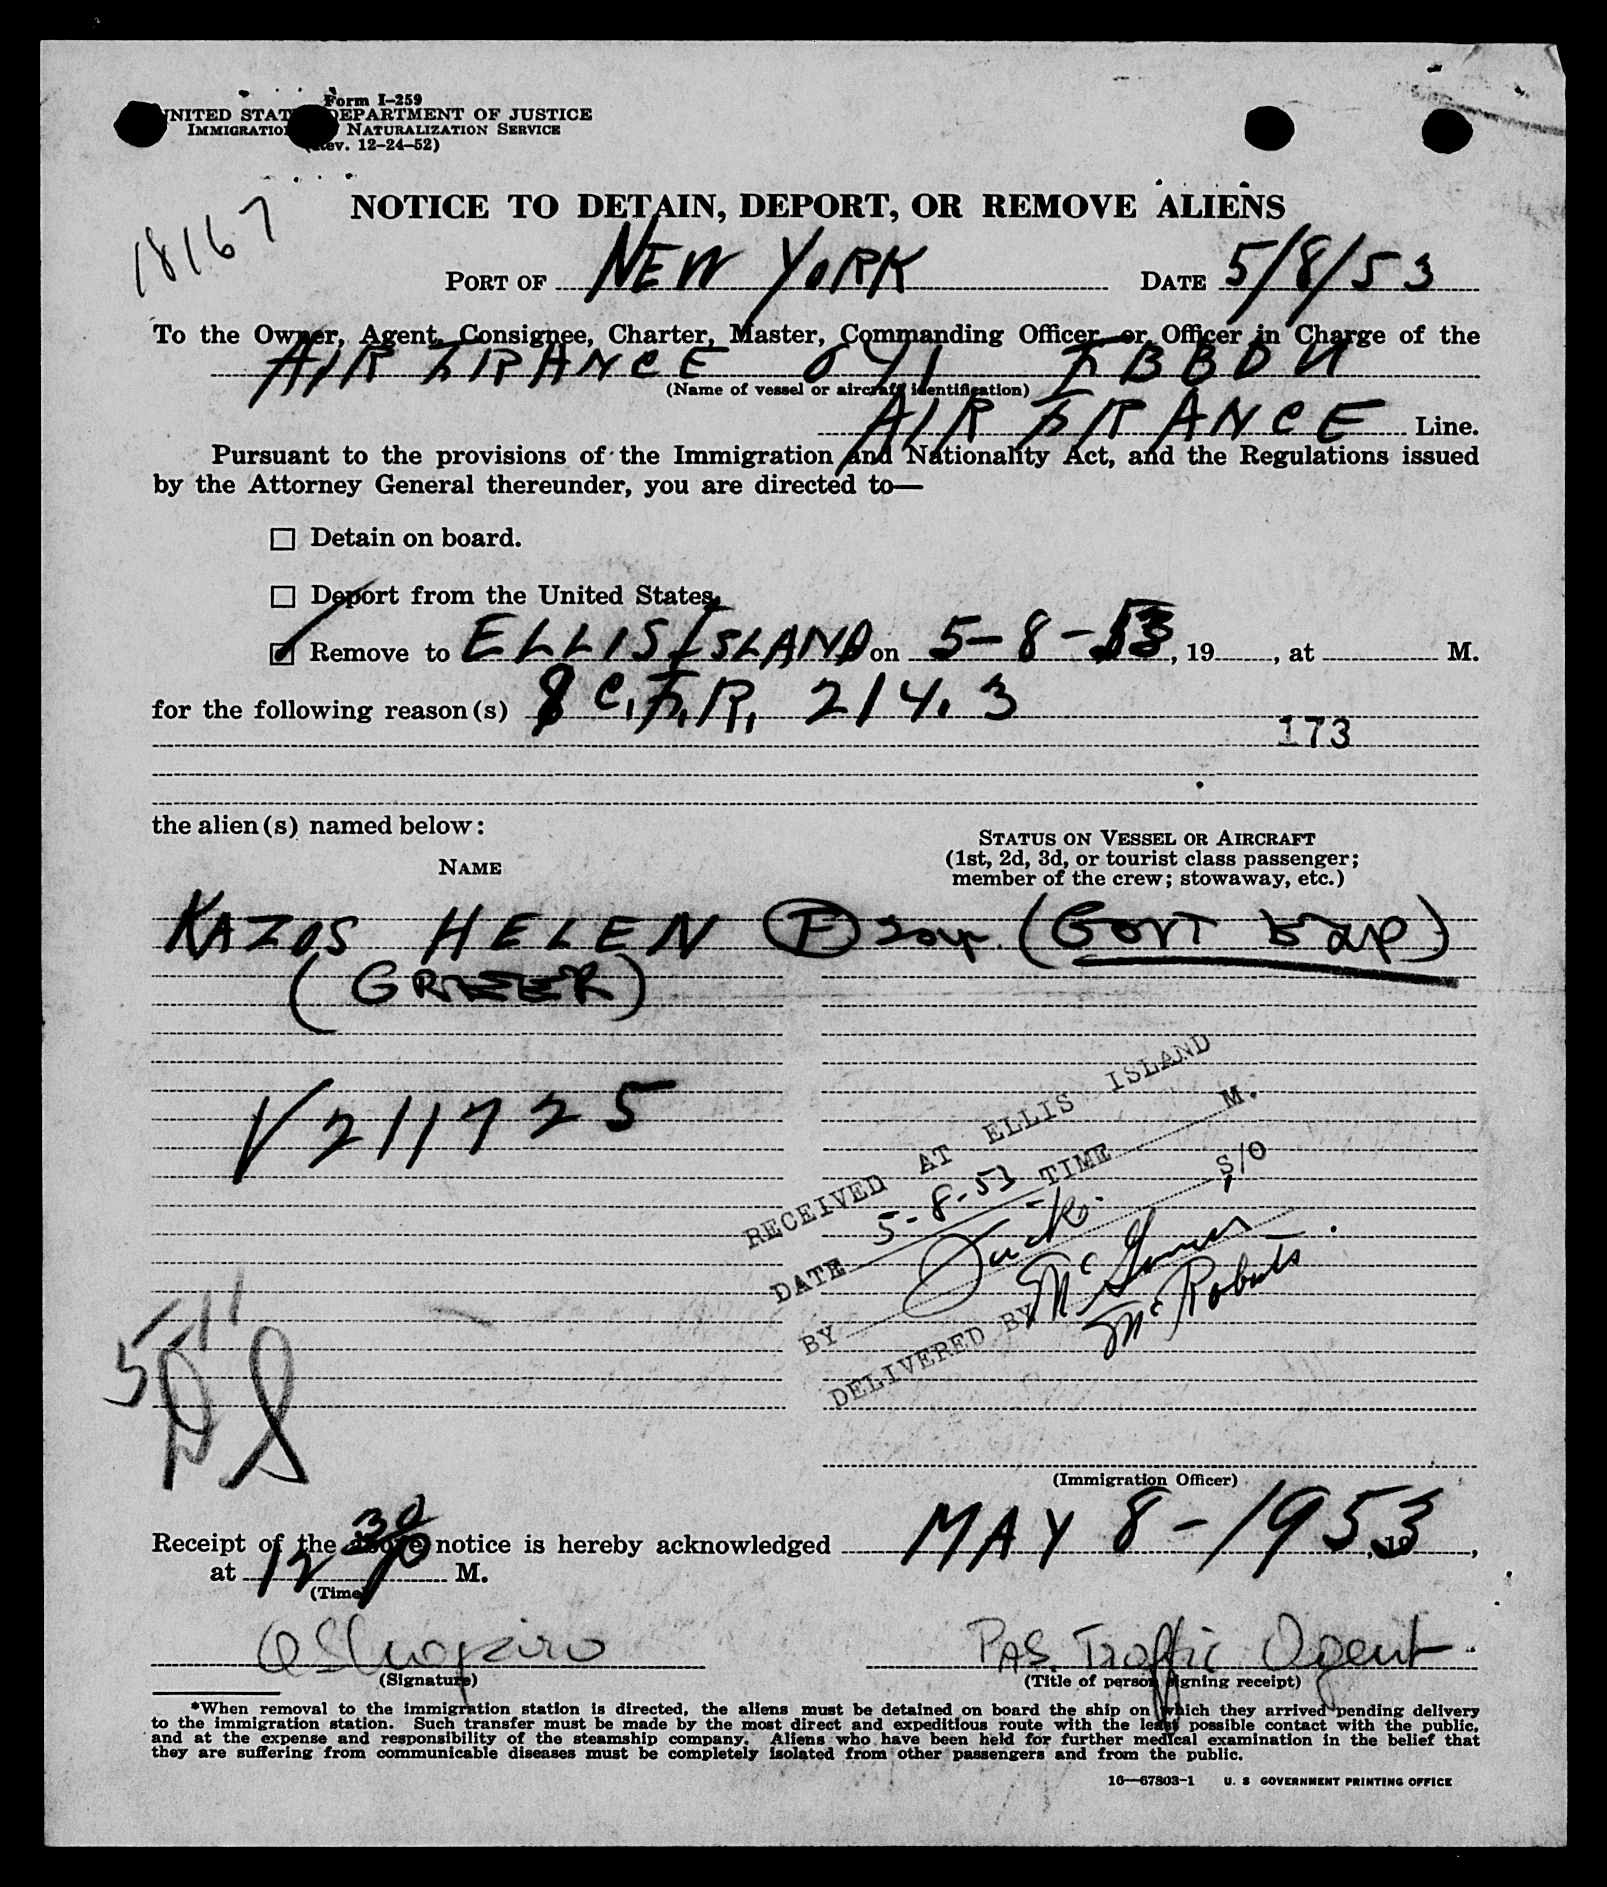 Form I-259
UNITED STATES DEPARTMENT OF JUSTICE
IMMIGRATION NATURALIZATION SERVICE
(Rev. 12-24-52)
18167
NOTICE TO DETAIN, DEPORT, OR REMOVE ALIENS
PORT OF NEW YORK DATE 5/8/53
To the Owner, Agent, Consignee, Charter, Master, Commanding Officer or Officer in Charge of the
AIR FRANCE 041 FBBDN
(Name of vessel or aircraft identification)
AIR FRANCE Line.
Pursuant to the provisions of the Immigration and Nationality Act, and the Regulations issued
by the Attorney General thereunder, you are directed to—
☐ Detain on board.
☐ Deport from the United States.
☑ Remove to ELLIS ISLAND on 5-8-53, 19, at M.
for the following reason(s) 8 C.F.R. 214.3
173
the alien(s) named below:
NAME
STATUS ON VESSEL OR AIRCRAFT
(1st, 2d, 3d, or tourist class passenger;
member of the crew; stowaway, etc.)
KAZOS HELEN (F) 20yr. (GOVT EXP)
(GREEK)
V 211725
RECEIVED AT ELLIS ISLAND
DATE 5-8-53 TIME M.
BY S/O
DELIVERED BY
McRoberts
5-11
(Immigration Officer)
Receipt of the above notice is hereby acknowledged MAY 8-1953, 19,
at 12 30 P M.
(Time)
(Signature)
PAS. Traffic Agent
(Title of person signing receipt)
*When removal to the immigration station is directed, the aliens must be detained on board the ship on which they arrived pending delivery
to the immigration station. Such transfer must be made by the most direct and expeditious route with the least possible contact with the public,
and at the expense and responsibility of the steamship company. Aliens who have been held for further medical examination in the belief that
they are suffering from communicable diseases must be completely isolated from other passengers and from the public.
16—67803-1 U. S GOVERNMENT PRINTING OFFICE